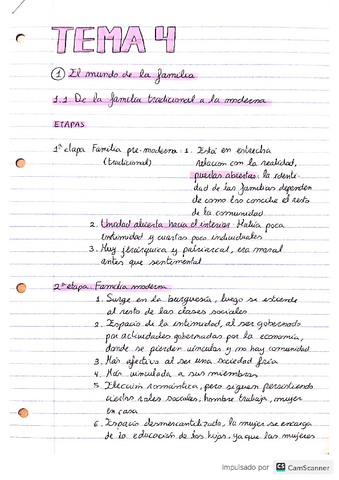 TEMA 4
① El mundo de la familia
1.1 De la familia tradicional a la moderna
ETAPAS
1ª etapa Familia pre-moderna: 1. Está en estrecha
(tradicional) relación con la realidad,
puertas abiertas: la identi-
dad de las familias dependen
de como las concibe el resto
de la comunidad
2. Unidad abierta hacia el interior. Había poca
intimidad y cuartos poco individuales
3. Muy jerárquica y patriarcal, era moral
antes que sentimental
2ª etapa. Familia moderna
1. Surge en la burguesía, luego se extiende
al resto de las clases sociales
2. Espacio de la intimidad, al ser gobernado
por actividades gobernadas por la economía,
donde se pierden vínculos y no hay comunidad
3. Más afectivo al ser una sociedad fría
4. Más vinculada a sus miembros
5. Elección romántica, pero siguen persistiendo
ciertos roles sociales, hombre trabaja, mujer
en casa
6. Espacio desmercantilizado, la mujer se encarga
de la educación de los hijos, ya que las mujeres
Impulsado por CS CamScanner